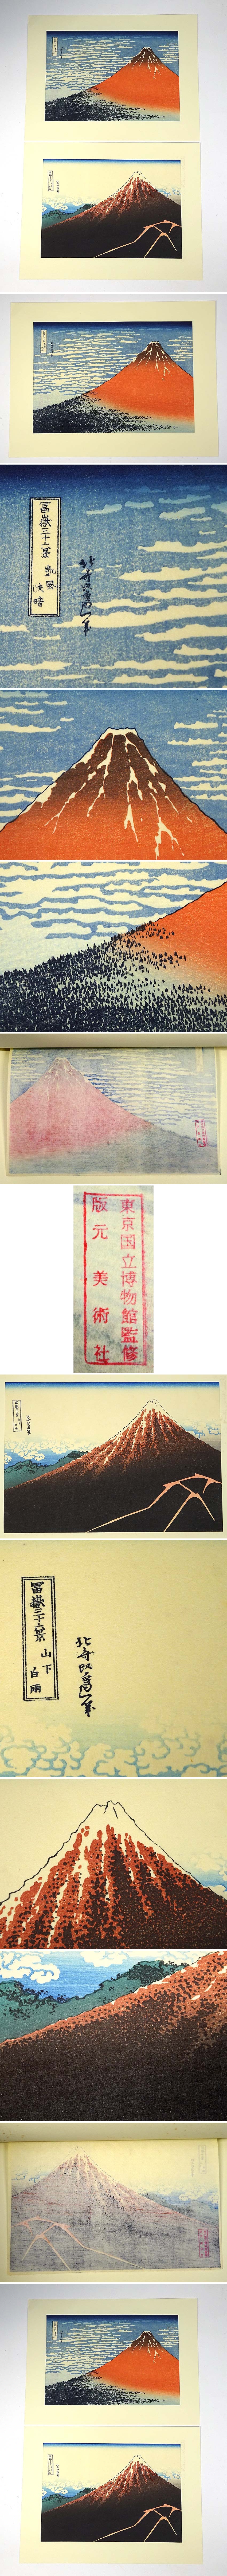 冨嶽三十六景 凱風
快晴
北斎改為一筆
東京国立博物館監修
版元 美術社
冨嶽三十六景 山下
白雨
北斎改為一筆